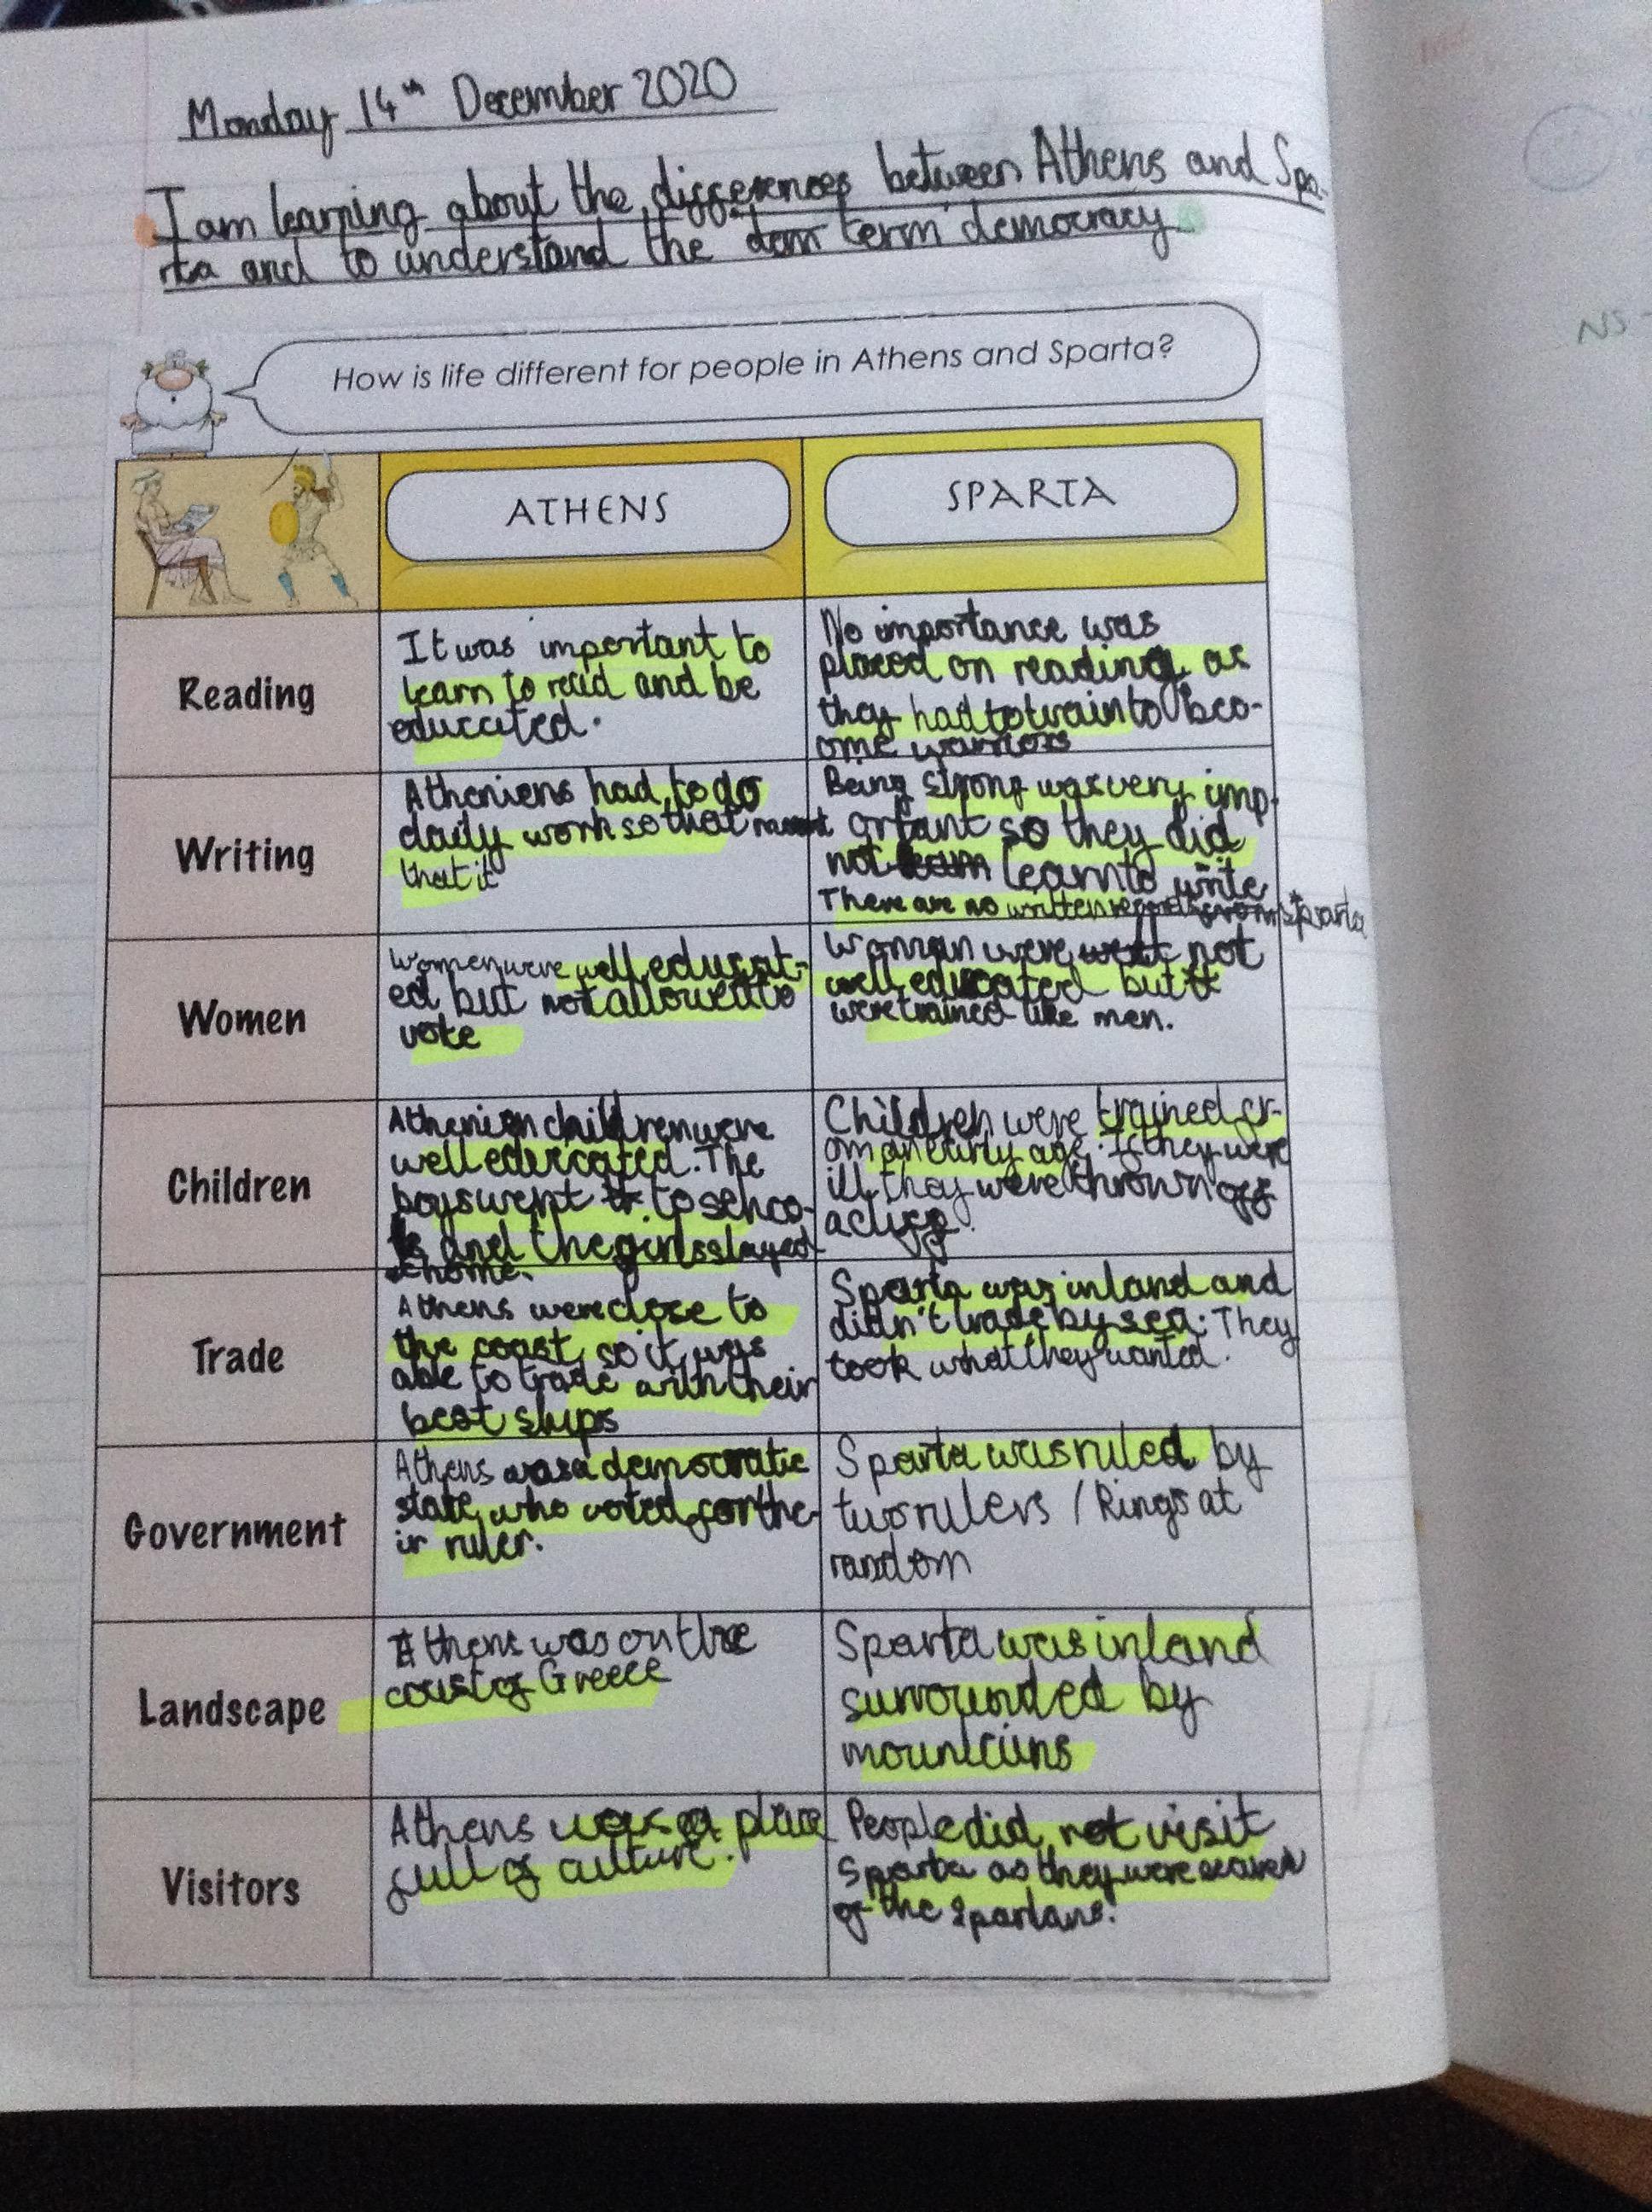 Monday 14th December 2020
I am learning about the differences between Athens and Spa-
rta and to understand the term 'democracy.
How is life different for people in Athens and Sparta?
ATHENS
SPARTA
Reading
It was important to
learn to read and be
educated.
No importance was
placed on reading as
they had to train to bec-
ome warriors
Writing
Atheniens had to do
daily work so that meant
that it
Being strong was very imp-
ortant so they did
not learn to write
There are no written records from Sparta
Women
Women were well educat-
ed but not allowed to
vote
Woman were not
well educated but
were trained like men.
Children
Athenian children were
well educated. The
boys went to schoo-
ls and the girls stayed
home.
Children were trained fr-
om an early age. If they were
ill they were thrown off
a cliff.
Trade
Athens were close to
the coast, so it was
able to trade with their
best ships
Sparta was inland and
didn't trade by sea. They
took what they wanted.
Government
Athens was a democratic
state who voted for the
ir ruler.
Sparta was ruled by
two rulers / Kings at
random
Landscape
Athens was on the
coast of Greece
Sparta was inland
surrounded by
mountains
Visitors
Athens was a place
full of culture.
People did not visit
Sparta as they were scared
of the Spartans.
NS